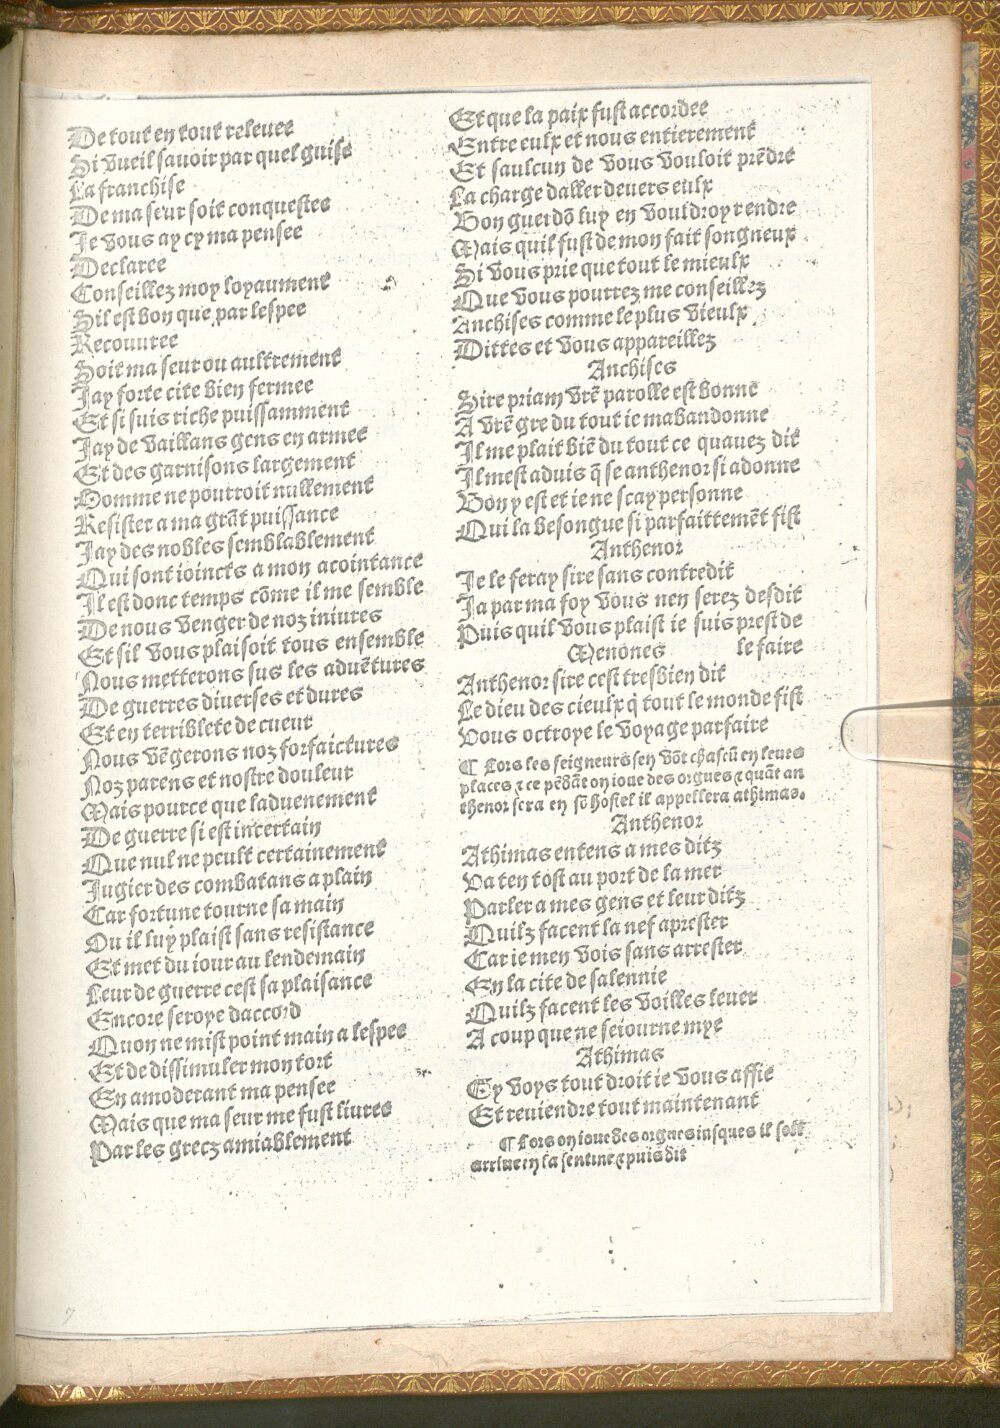 De tout en tout releuee
Si vueil sauoir par quel guise
La franchise
De ma seur soit conquestee
Je vous ay cy ma pensee
Declaree
Conseillez moy loyaument
Sil est bon que par lespee
Recouuree
Soit ma seur ou aultrement
Jay forte cite bien fermee
Et si suis riche puissamment
Jay de vaillans gens en armee
Et des garnisons largement
Homme ne pourroit nullement
Resister a ma grãt puissance
Jay des nobles semblablement
Qui sont ioincts a mon acointance
Il est donc temps cõme il me semble
De nous venger de noz iniures
Et sil vous plaisoit tous ensemble
Nous metterons sus les aduẽtures
De guerres diuerses et dures
Et en terriblete de cueur
Nous vẽgerons noz forfaictures
Noz parens et nostre douleur
Mais pource que laduenement
De guerre si est incertain
Que nul ne peult certainement
Jugier des combatans a plain
Car fortune tourne sa main
Ou il luy plaist sans resistance
Et met du iour au lendemain
Leur de guerre cest sa plaisance
Encore seroye daccord
Quon ne mist point main a lespee
Et de dissimuler mon tort
En amoderant ma pensee
Mais que ma seur me fust liuree
Par les grecz amiablement
Et que la paix fust accordee
Entre eulx et nous entierement
Et saulcun de vous vouloit prẽdre
La charge daller deuers eulx
Bon guerdõ luy en vouldroy rendre
Mais quil fust de mon fait songneux
Si vous prie que tout le mieulx
Que vous pourrez me conseillez
Anchises comme le plus vieulx
Dittes et vous appareillez
Anchises
Sire priam vrẽ parolle est bonne
A vrẽ gre du tout ie mabandonne
Il me plait biẽ du tout ce quauez dit
Il mest aduis q̃ se anthenor si adonne
Bon y est et ie ne scay personne
Qui la besongue si parfaittemẽt fist
Anthenor
Je le feray sire sans contredit
Ja par ma foy vous nen serez desdit
Puis quil vous plaist ie suis prest de
Menones le faire
Anthenor sire cest tresbien dit
Le dieu des cieulx q̇ tout le monde fist
Vous octroye le voyage parfaire
¶ Lors les seigneurs sen võt chascũ en leurs
places ⁊ ce pẽdãt on ioue des orgues ⁊ quãt an
thenor sera en sõ hostel il appellera athimas.
Anthenor
Athimas entens a mes ditz
Va ten tost au port de la mer
Parler a mes gens et leur ditz
Quilz facent la nef aprester
Car ie men vois sans arrester
En la cite de salennie
Quilz facent les voilles leuer
A coup que ne seiourne mye
Athimas
Gy voys tout droit ie vous affie
Et reuiendre tout maintenant
¶ Lors on ioue des orgues iusques il soit
arriue en la sentine ⁊ puis dit
7